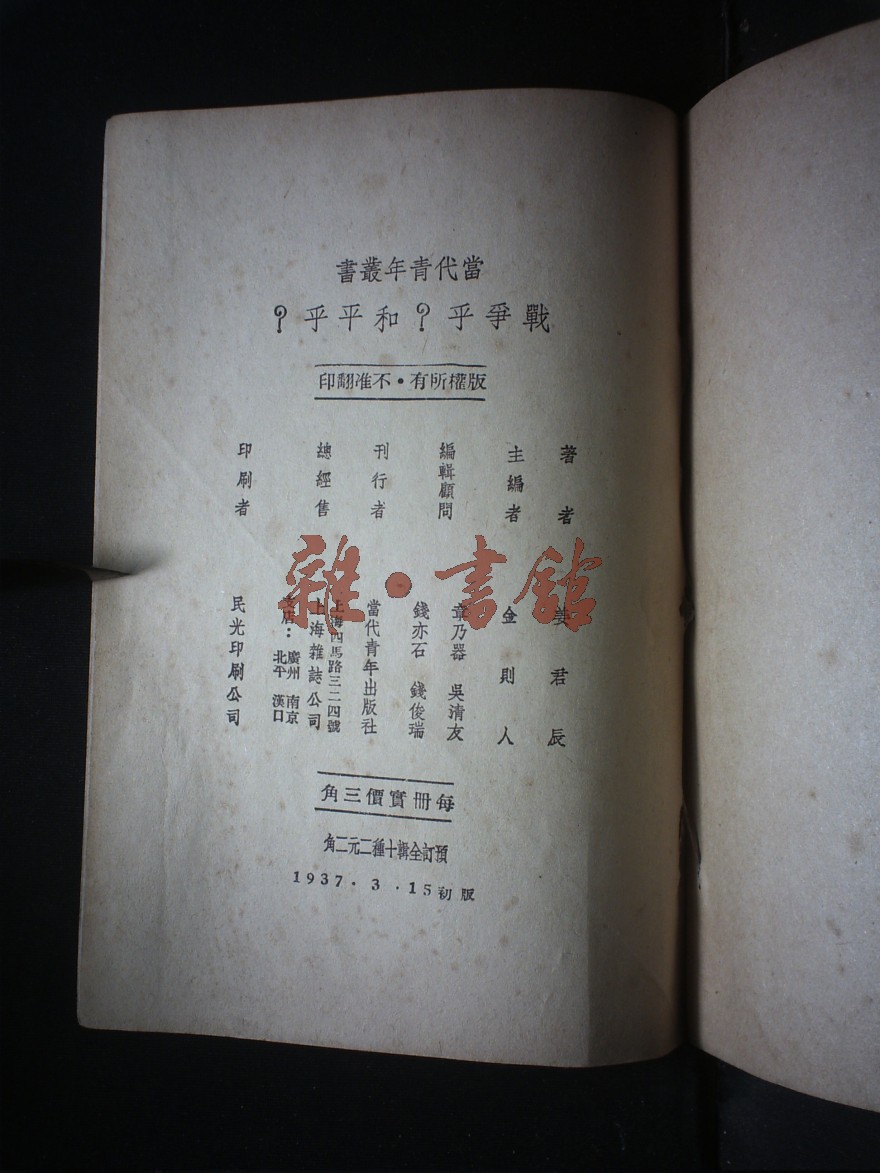 當代青年叢書
戰爭乎?和平乎?
版權所有·不准翻印
著者 姜君辰
主編者 金則人
編輯顧問 章乃器 吳清友
錢亦石 錢俊瑞
刊行者 當代青年出版社
上海四馬路三二四號
總經售 上海雜誌公司
支店:廣州 南京
北平 漢口
印刷者 民光印刷公司
每冊實價三角
預訂全輯十種二元二角
1937·3·15初版
雜·書館